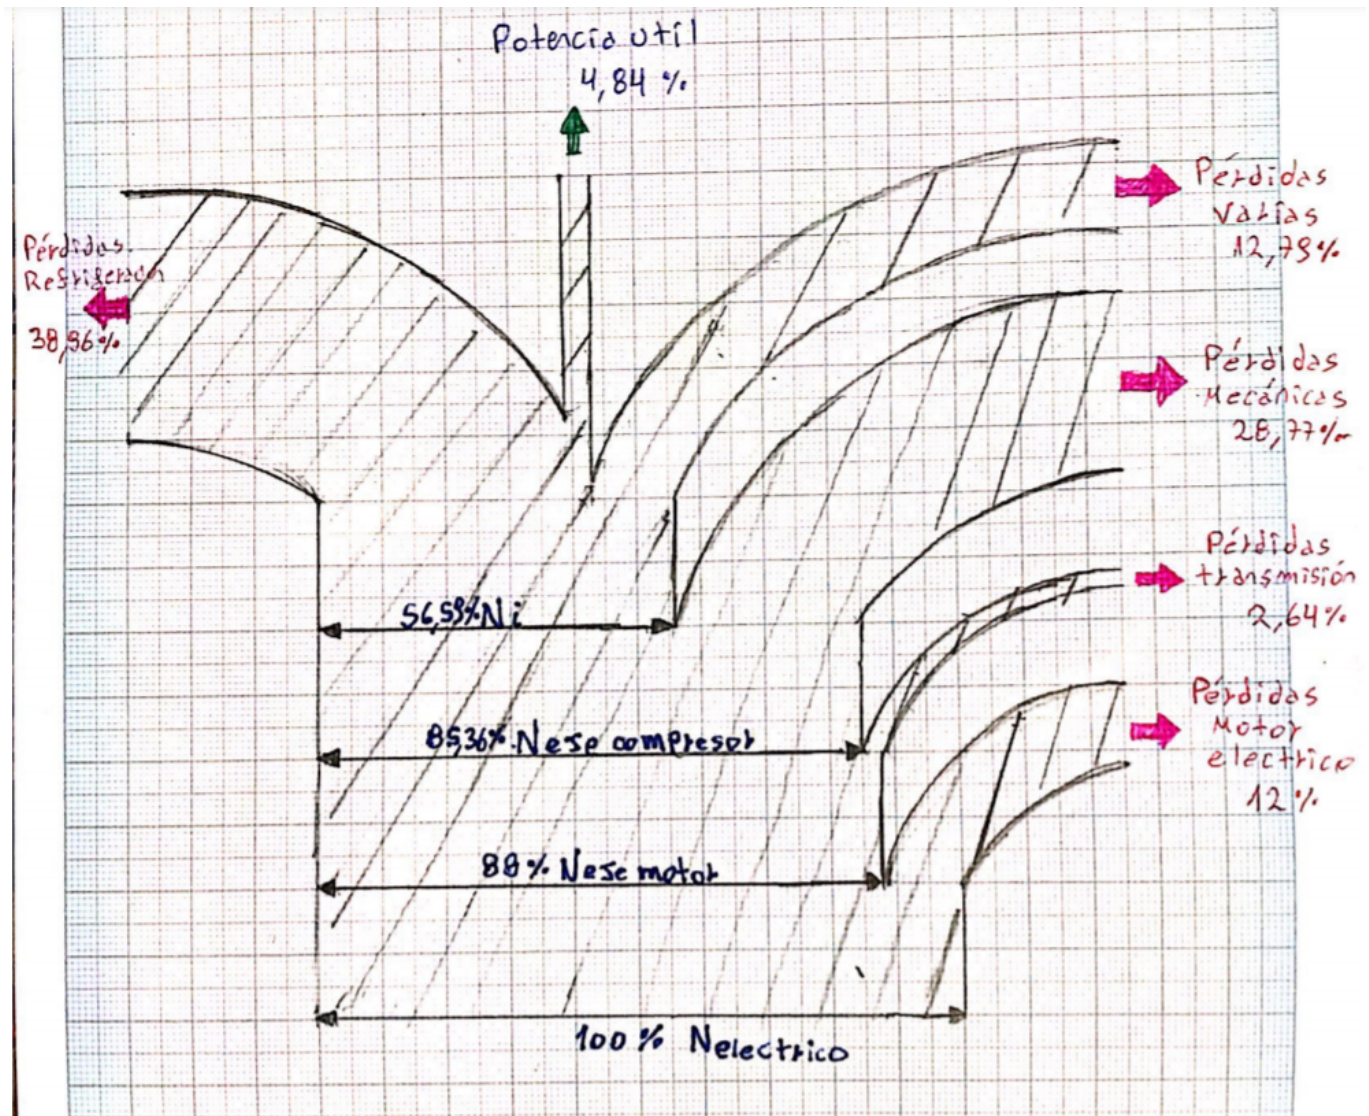 Potencia util
4,84 %
Pérdidas
Refrigeración
38,96%
Pérdidas
Varías
12,79%
Pérdidas
Mecánicas
28,77%
Pérdidas
transmisión
2,64%
Pérdidas
Motor
electrico
12 %
56,59% Ni
85,36% Neje compresor
88 % Neje motor
100 % Nelectrico